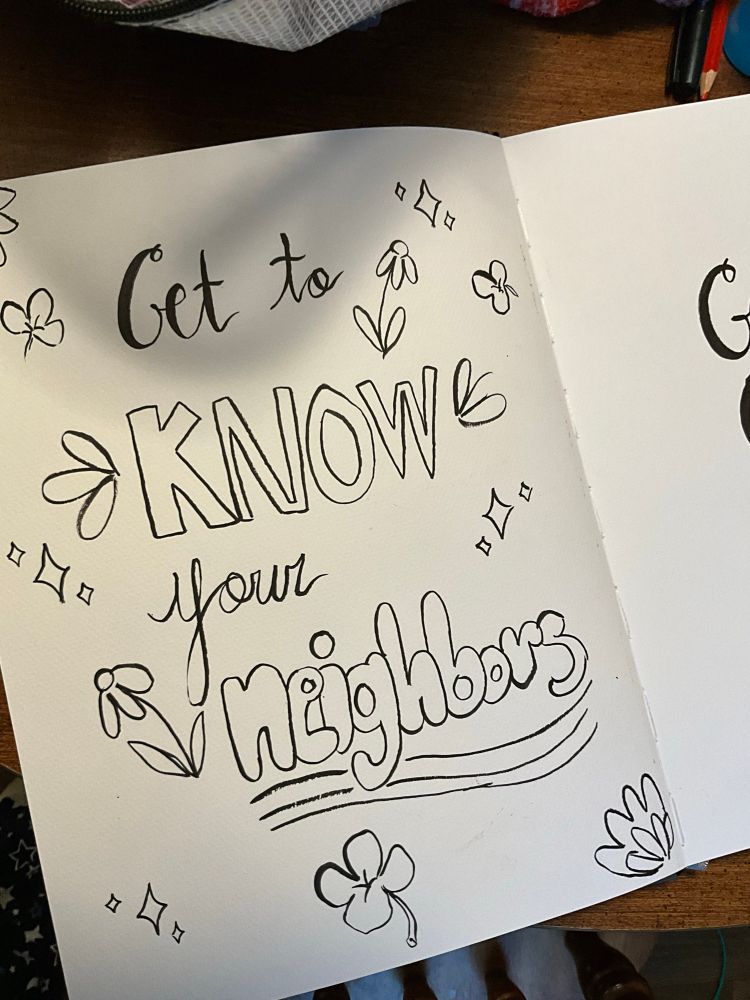 Get to
KNOW
your
neighbors
G